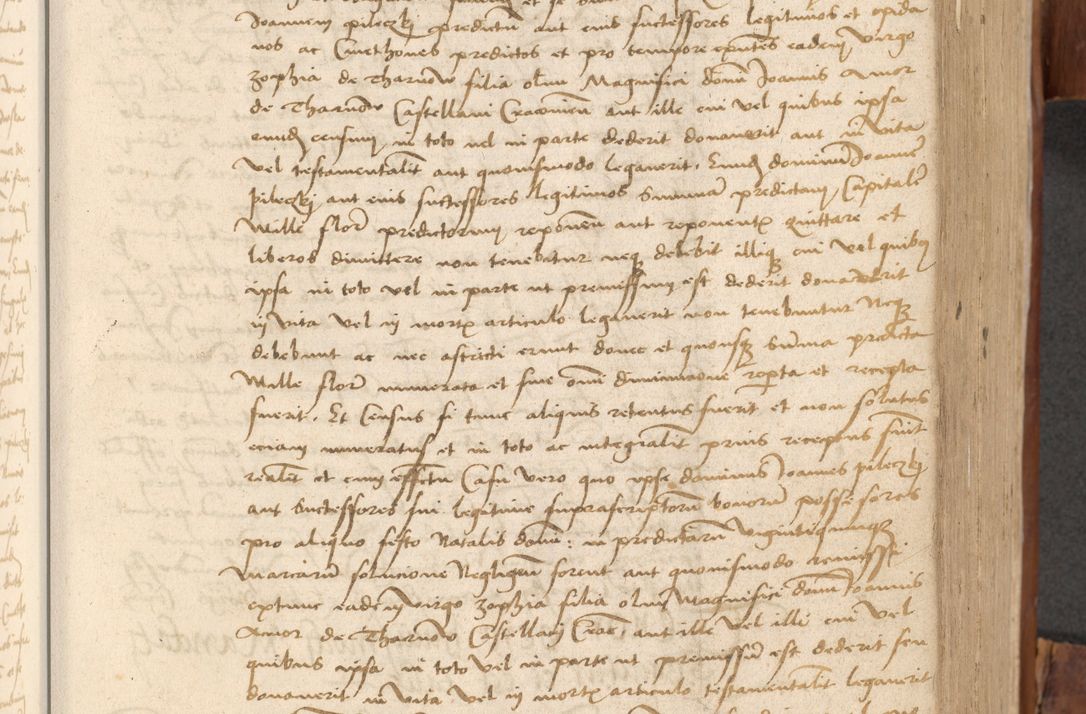 Joannem pileczki predictum aut eius successores legitimos et opida
nos ac Cmethones predictos et pro tempore existentes eadem virgo
zophia de Tharnow filia olim Magnifici domini Joannis Amor
de Tharnow Castellani Cracovien aut ille cui vel quibus ipsa
eundem censum in toto vel in parte dederit donaverit aut in vita
vel testamentaliter aut quovismodo legaverit. Eundem dominum Joannem
pileczki aut eius successores legitimos Summam predictam Capitalem
Mille florenorum predictorum reponentem aut reponentes quittare et
liberos dimittere non tenebatur neque debebit illique cui vel quibus
ipsa in toto vel in parte ut premissum est dederit donaverit
in vita vel in mortis articulo legaverit non tenebuntur Neque
debebunt ac nec astricti erunt donec et quousque Summa predicta
Mille florenorum numerata et sine omni diminutione reposita et recepta
fuerit. Et Census si tunc aliquis retentus fuerit et non solutus
eciam numeratus et in toto ac integraliter prius receptus fuerit
realiter et cum effectu Casu vero quo ipse dominus Joannes pileczki
aut Successores sui legitime suprascriptorum bonorum possessores
pro aliquo festo Natalis domini: in predictarum vigintiquinque
marcarum solucione Negligentes forent aut quovismodo remissi
extunc eadem virgo zophia filia olim Magnifici domini Joannis
Amor de Tharnow Castellani Crac. aut ille vel illi cui vel
quibus ipsa in toto vel in parte ut premissum est dederit seu
donaverit in vita vel in mortis articulo testamentaliter legaverit